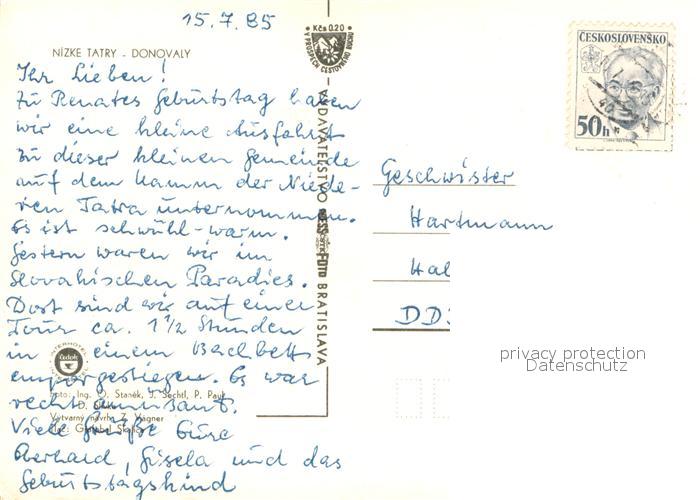 15.7.85
NÍZKE TATRY - DONOVALY
Ihr Lieben!
Zu Renates Geburtstag haben
wir eine kleine Ausfahrt
zu dieser kleinen Gemeinde
auf dem Kamm der Niede-
ren Tatra unternommen.
Es ist schwühl-warm.
Gestern waren wir im
Slovakischen Paradies.
Dort sind wir auf einer
Tour ca. 1 1/2 Stunden
in einem Bachbett
emporgestiegen. Es war
recht amüsant.
Viele Grüße Eure
Eberhard, Gisela und das
Geburtstagskind
INTERHOTEL
Čedok
Foto: Ing. O. Staněk, J. Sechtl, P. Paul
Výtvarný návrh: Z. Wagner
Kčs 0,20
VYDAVATEĽSTVO
BRATISLAVA
ČESKOSLOVENSKO
50h
Geschwister
Hartmann
Hal
DD
privacy protection
Datenschutz